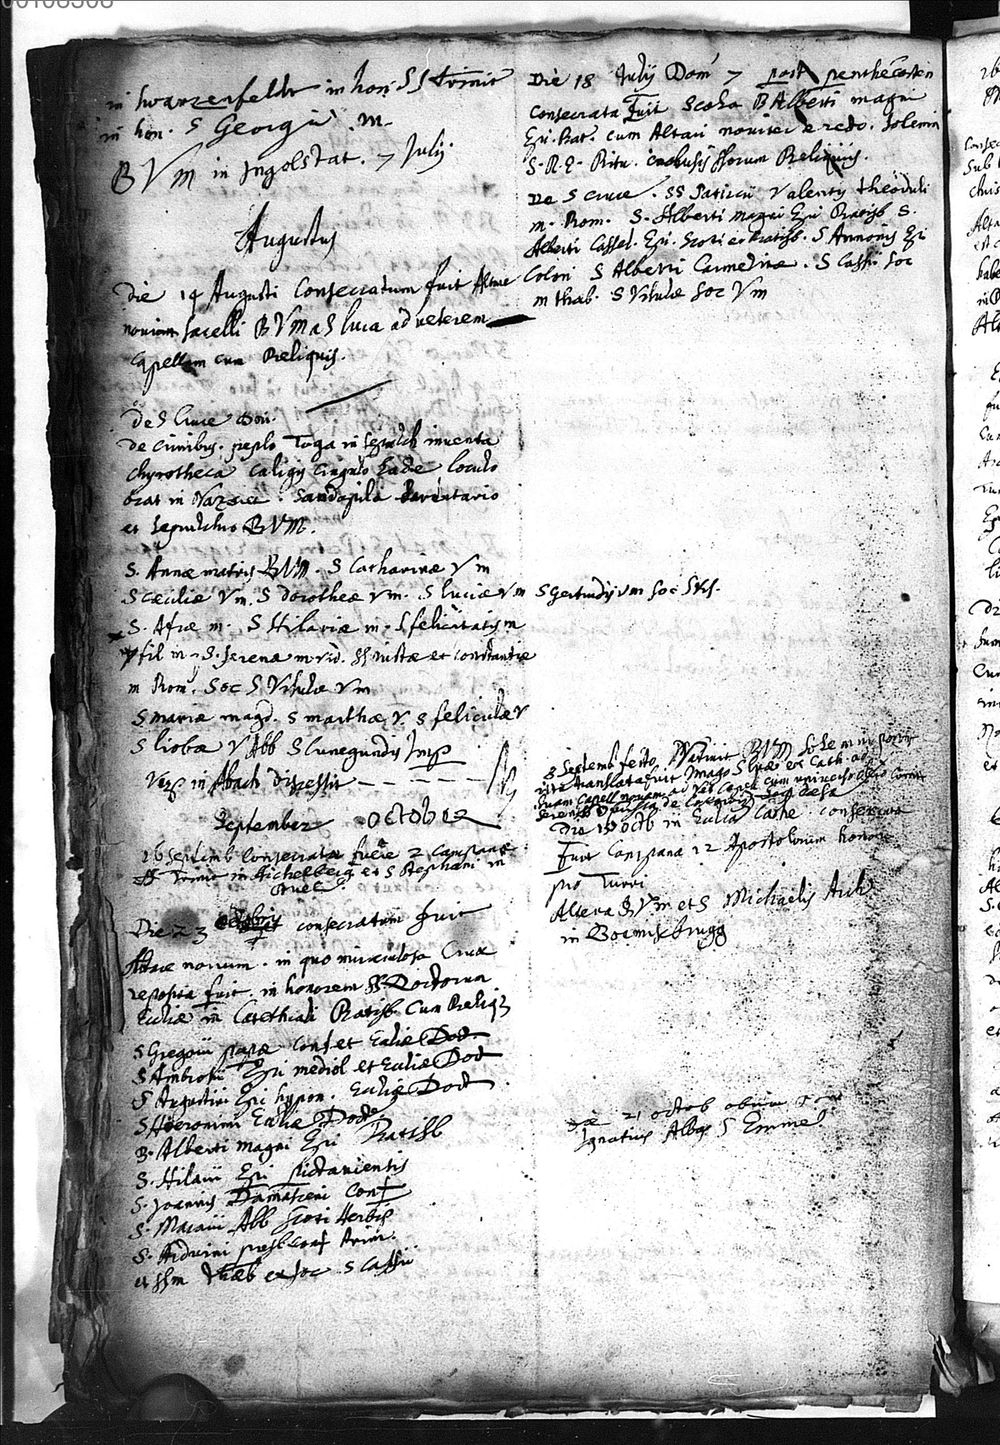 in hon SS Trinit
in hon. S Georgii . M.
B V M in Ingolstat. 7 Julij.
Augustus
Die 14 Augusti Consecratum fuit Altare
novum sacelli B V M a S Luca ad veterem
Capellam cum Reliquijs.
De S Cruce Dni.
de Crinibus. peplo Toga in sepulch inventa
chyrotheca caligis cingulo loculo
in Nazaret . Sandapila
et sepulchro B V M.
S. Annæ matris B V M . S Catharinæ V m
S Cæciliæ V m. S Dorotheæ V m. S Luciæ V m S Gertrudis V m Soc S Urs.
S. Afræ m. S Hilariæ m. S felicitatis m
7 fil m. S. Serenæ m vid. SS Justæ et Constantiæ
m Rom. Soc S Ursulæ V m
S Mariæ magd. S Marthæ V. S feliculæ V
S Liobæ V Abb S Cunegundis Imp
in Abach discessit
September OCTOBER
26 Septemb Consecratæ fuere 2 Campanæ
SS Trinit in Aichelberg et S Stephani in
Die 23 Octobris consecratum fuit
Altare novum . in quo miraculosa Crux
reposita fuit . in honorem SS Doctorum
Eccliæ in Cathedrali Ratisb Cum Reliq
S Gregorii papæ Conf et Eccliæ Doct
S Ambrosii Epi mediol et Eccliæ Doct
S Augustini Epi hippon. Eccliæ Doct
S Hieronimi Eccliæ Doct
B. Alberti magni Epi Ratisb
S. Hilarii Epi pictaviensis
S. Joannis Damasceni Conf
S. Macarii Abb Scoti Herbip
S. Arduini presb conf Arim.
et SSm Theb ex soc S Cassii
Die 18 Julij Dom 7 post penthecosten
Consecrata fuit Scola B Alberti magni
Epi. Rat. cum Altari noviter erecto. solemni
S. R. E. Ritu. inclusis SSorum Reliquiis.
De S Cruce . SS Patricii Valentis Theoduli
m. Rom. S. Alberti magni Epi Ratisb S.
Alberti Cassel. Epi. Scoti et Ratisb. S Annonis Epi
Coloni S Alberti Carmelitæ . S Cassii Soc
m theb. S Ursulæ Soc V m
8 Septemb festo Nativit B V M Solemni
ritu translata fuit Imago S Lucæ ex Cath ad
suam Capell novam ad Vet Capell cum universo Clero
Die 15 Octb in Ecclia Cathe . consecrata
fuit Campana 12 Apostolorum honore
pro Turri
Altera B V M et S Michaelis Arch
in
Die 21 octob obiit
Ignatius Abbas S Emme